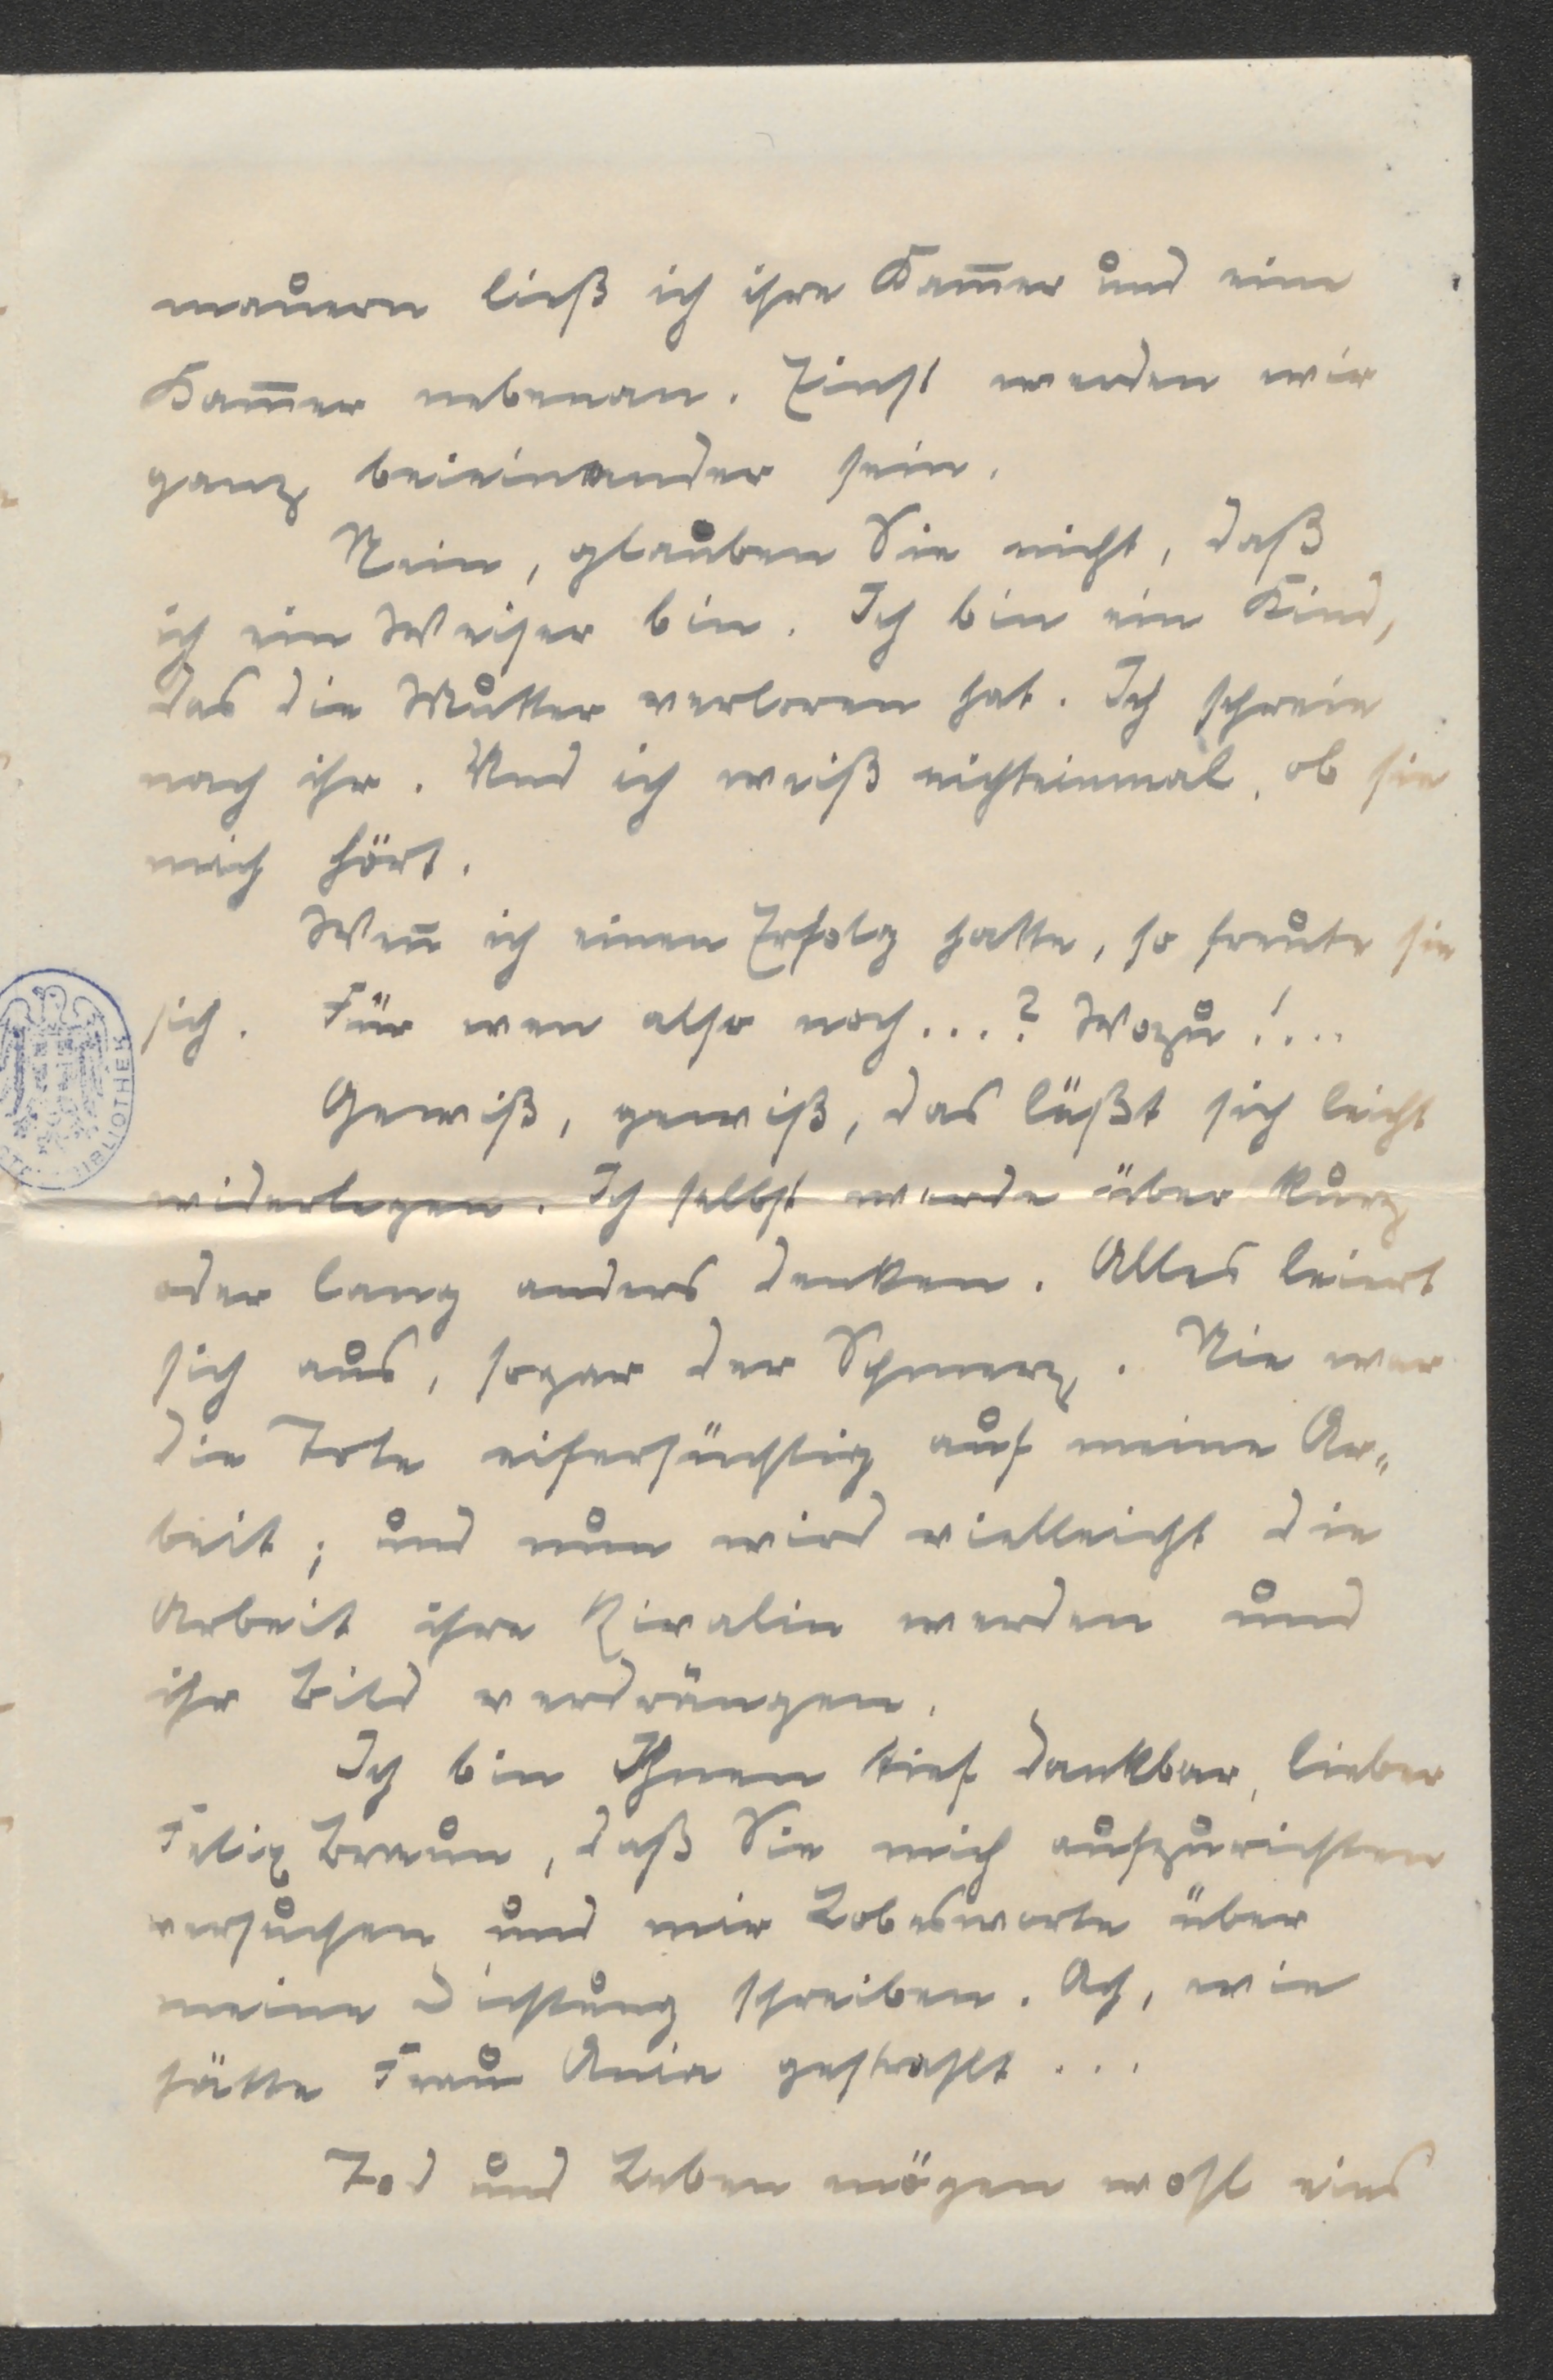 mauern ließ ich ihre Kam̅er und eine
Kam̅er nebenan. Einst werden wir
ganz beieinander sein.
Nein, glauben Sie nicht, daß
ich ein Weiser bin. Ich bin ein Kind,
das die Mutter verloren hat. Ich schreie
nach ihr. Und ich weiß nichteinmal, ob sie
mich hört.
Wen̅ ich einen Erfolg hatte, so freute sie
sich. Für wen also noch...? Wozu!...
Gewiß, gewiß, das läßt sich leicht
widerlegen. Ich selbst werde über kurz
oder lang anders denken. Alles leiert
sich aus, sogar der Schmerz. Nie war
die Tote eifersüchtig auf meine Ar-
beit; und nun wird vielleicht die
Arbeit ihre Rivalin werden und
ihr Bild verdrängen.
Ich bin Ihnen tief dankbar, lieber
Felix Braun, daß Sie mich aufzurichten
versuchen und mir Lobesworte über
meine Dichtung schreiben. Ach, wie
hätte Frau Ania gestrahlt...
Tod und Leben mögen wohl eins
BIBLIOTHEK